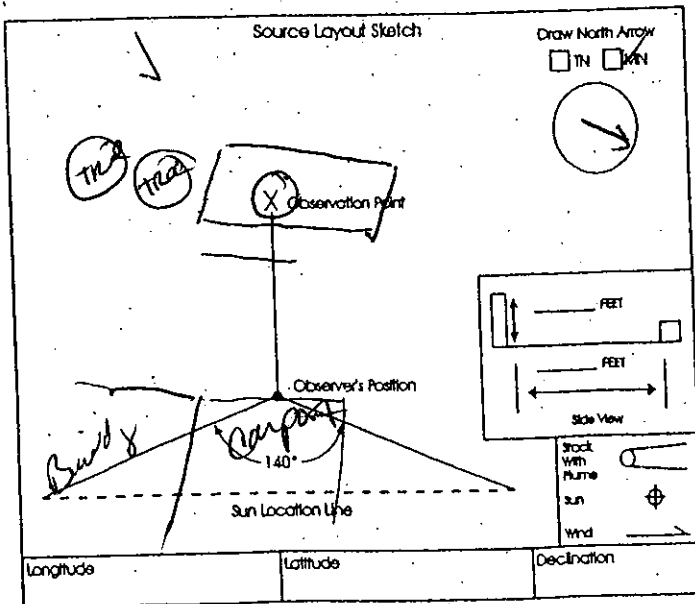 Source Layout Sketch
Draw North Arrow
TN MN
Tree Tree
X Observation Point
FEET
FEET
Side View
Observer's Position
Carport
140°
Sun Location Line
Stack
With
Plume
Sun
Wind
Longitude Latitude Declination